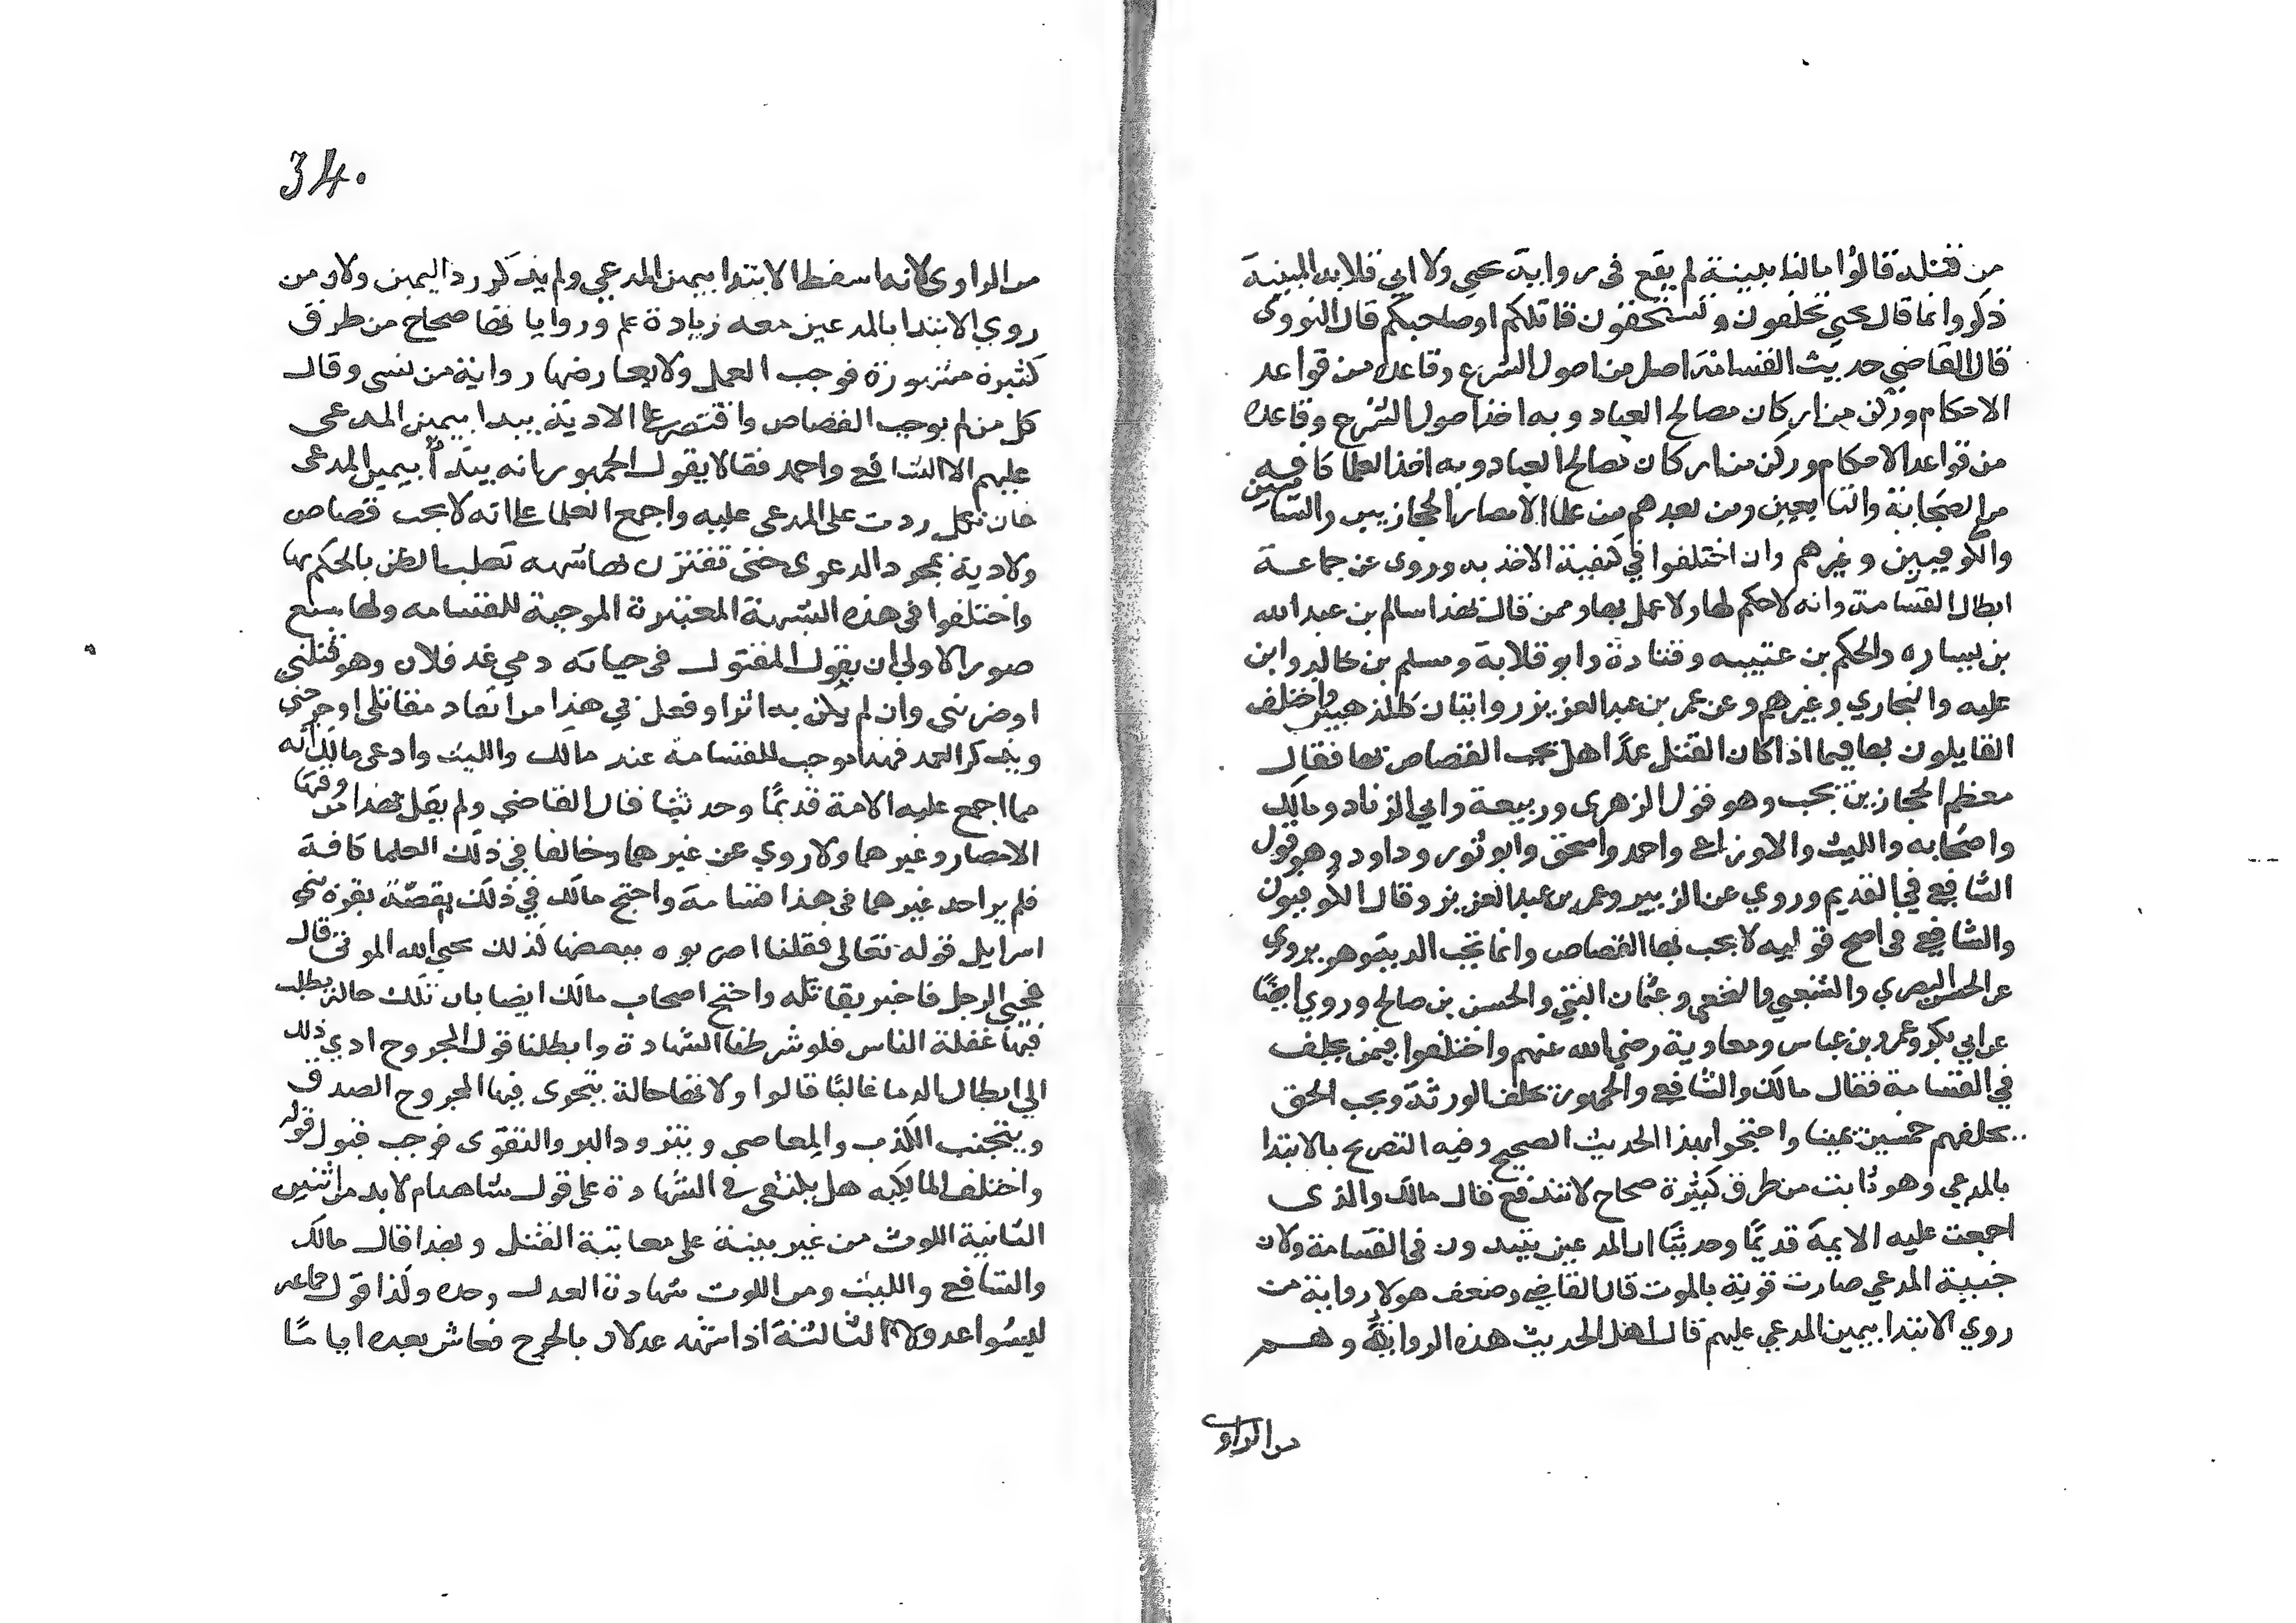 من قتله قالوا مالنا بينة لم يقع فى رواية يحيى ولا ابي قلابه البينة
ذكروا انما قال يحيى تحلفون وتستحقون قاتلكم او صاحبكم قال النووى
قال القاضي حديث القسامة اصل من اصول الشرع وقاعده من قواعد
الاحكام وركن من اركان مصالح العباد وبه اخذ اصول الشرع وقاعده
من قواعد الاحكام وركن من اركان مصالح العباد وبه اخذ العلما كافه
من الصحابة والتابعين ومن بعدهم من علما الامصار الحجازيين والشاميين
والكوفيين وغيرهم وان اختلفوا في كيفية الاخذ به وروى عن جماعة
ابطال القسامة وانه لاحكم لها ولا عمل بها وممن قال بهذا سالم بن عبد الله
بن يساره والحكم بن عتيبه وقتادة وابو قلابة ومسلم بن خالد وابن
عليه والبخاري وغيرهم وعن عمر بن عبد العزيز روايتان كالمذهبين واختلف
القايلون بها فيما اذا كان القتل عمدًا هل يجب القصاص بها فقال
معظم الحجازيين يجب وهو قول الزهرى وربيعة وابي الزناد ومالك
واصحابه والليث والاوزاعى واحمد واسحق وابو ثور وداود وهو قول
الشافعي في القديم وروي عن الزبير وعمر بن عبد العزيز وقال الكوفيون
والشافعي فى اصح قوليه لا يجب بها القصاص وانما تجب الدية وهو يروى
عن الحسن البصري والشعبي والنخعي وعثمان البتي والحسن بن صالح وروي ايضًا
عن ابي بكر وعمر وبن عباس ومعاوية رضي الله عنهم واختلفوا فيمن يحلف
في القسامة فقال مالك والشافعي والجمهور تحلف الورثة ويجب الحق
بحلفهم خمسين يمينا واحتجوا بهذا الحديث الصحيح وفيه التصريح بالابتدا
بالمدعي وهو ثابت من طرق كثيرة صحاح لا تندفع قال مالك والذى
اجمعت عليه الايمة قديمًا وحديثًا ان المدعين يبتدون فى القسامة ولان
جنبية المدعي صارت قوية بالموت قال القاضي وضعف هولا رواية من
روي الابتدا بيمين المدعي عليهم قال اهل الحديث هذه الرواية وهم
من الراوى
34.
من الراوى لانه اسقط الابتدا بيمين المدعي ولم يذكر رد اليمين ولان من
روي الابتدا بالمدعين معه زيادة علم وروايا تها صحاح من طرق
كثيرة مشهورة فوجب العمل ولا يعارضها رواية من نسى وقال
كل من لم يوجب القصاص واقتصر على الادية يبدا بيمين المدعى
عليهم الا الشافعي واحمد فقالا يقول الجمهور انه يبتدأ بيمين المدعى
فان نكل ردت على المدعى عليه واجمع العلما على انه لا يجب قصاص
ولا دية بمجرد الدعوى حتى تقترن بها شبهه تغلب الظن بالحكم بها
واختلفوا فى هذه الشبهة المعتبرة الموجبة للقسامه ولها سبع
صور الاولى ان يقول المقتول فى حياته دمي عند فلان وهو قتلني
او ضربني وان لم يكن به اثر او فعل بي هذا من انفاد مقاتلى او جرحني
ويذكر العمد فهذا موجب للقسامة عند مالك والليث وادعى مالك انه
مما اجمع عليه الامة قديمًا وحديثها قال القاضي ولم يقل بهذا من فقها
الامصار وغيرهما ولا روي عن غيرهما وخالفا في ذلك العلما كافة
فلم ير احد غيرهما فى هذا قسامة واحتج مالك في ذلك بقصة بقرة بني
اسرايل قوله تعالى فقلنا اضربوه ببعضها كذلك يحيى الله الموتى قال
فحيي الرجل فاخبر بقاتله واحتج اصحاب مالك ايضا بان تلك حالة يطلب
فيها غفلة الناس فلو شرطنا الشهادة وابطلنا قول المجروح ادي ذلك
الي ابطال الدما غالبًا قالوا ولانها حالة يتحرى فيها المجروح الصدق
ويتجنب الكذب والمعاصي ويتزود البر والتقوى فوجب قبول قوله
واختلف المالكيه هل يكتفى في الشهادة على قول شاهد ام لا بد من اثنين
الثانية اللوث من غير بينة على معاينة القتل وبهذا قال مالك
والشافعي والليث ومن اللوث شهادة العدل وحده وكذا قول جماعه
ليسوا عدولا الثالثة اذا شهد عدلان بالجرح فعاش بعده اياما